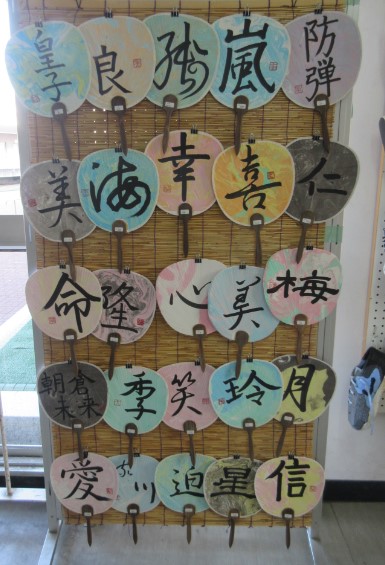 皇子
良
嵐
防弾
美
海
幸
喜
仁
命
隆
心
美
梅
朝倉
未来
季
笑
玲
月
愛
川
迫
星
信